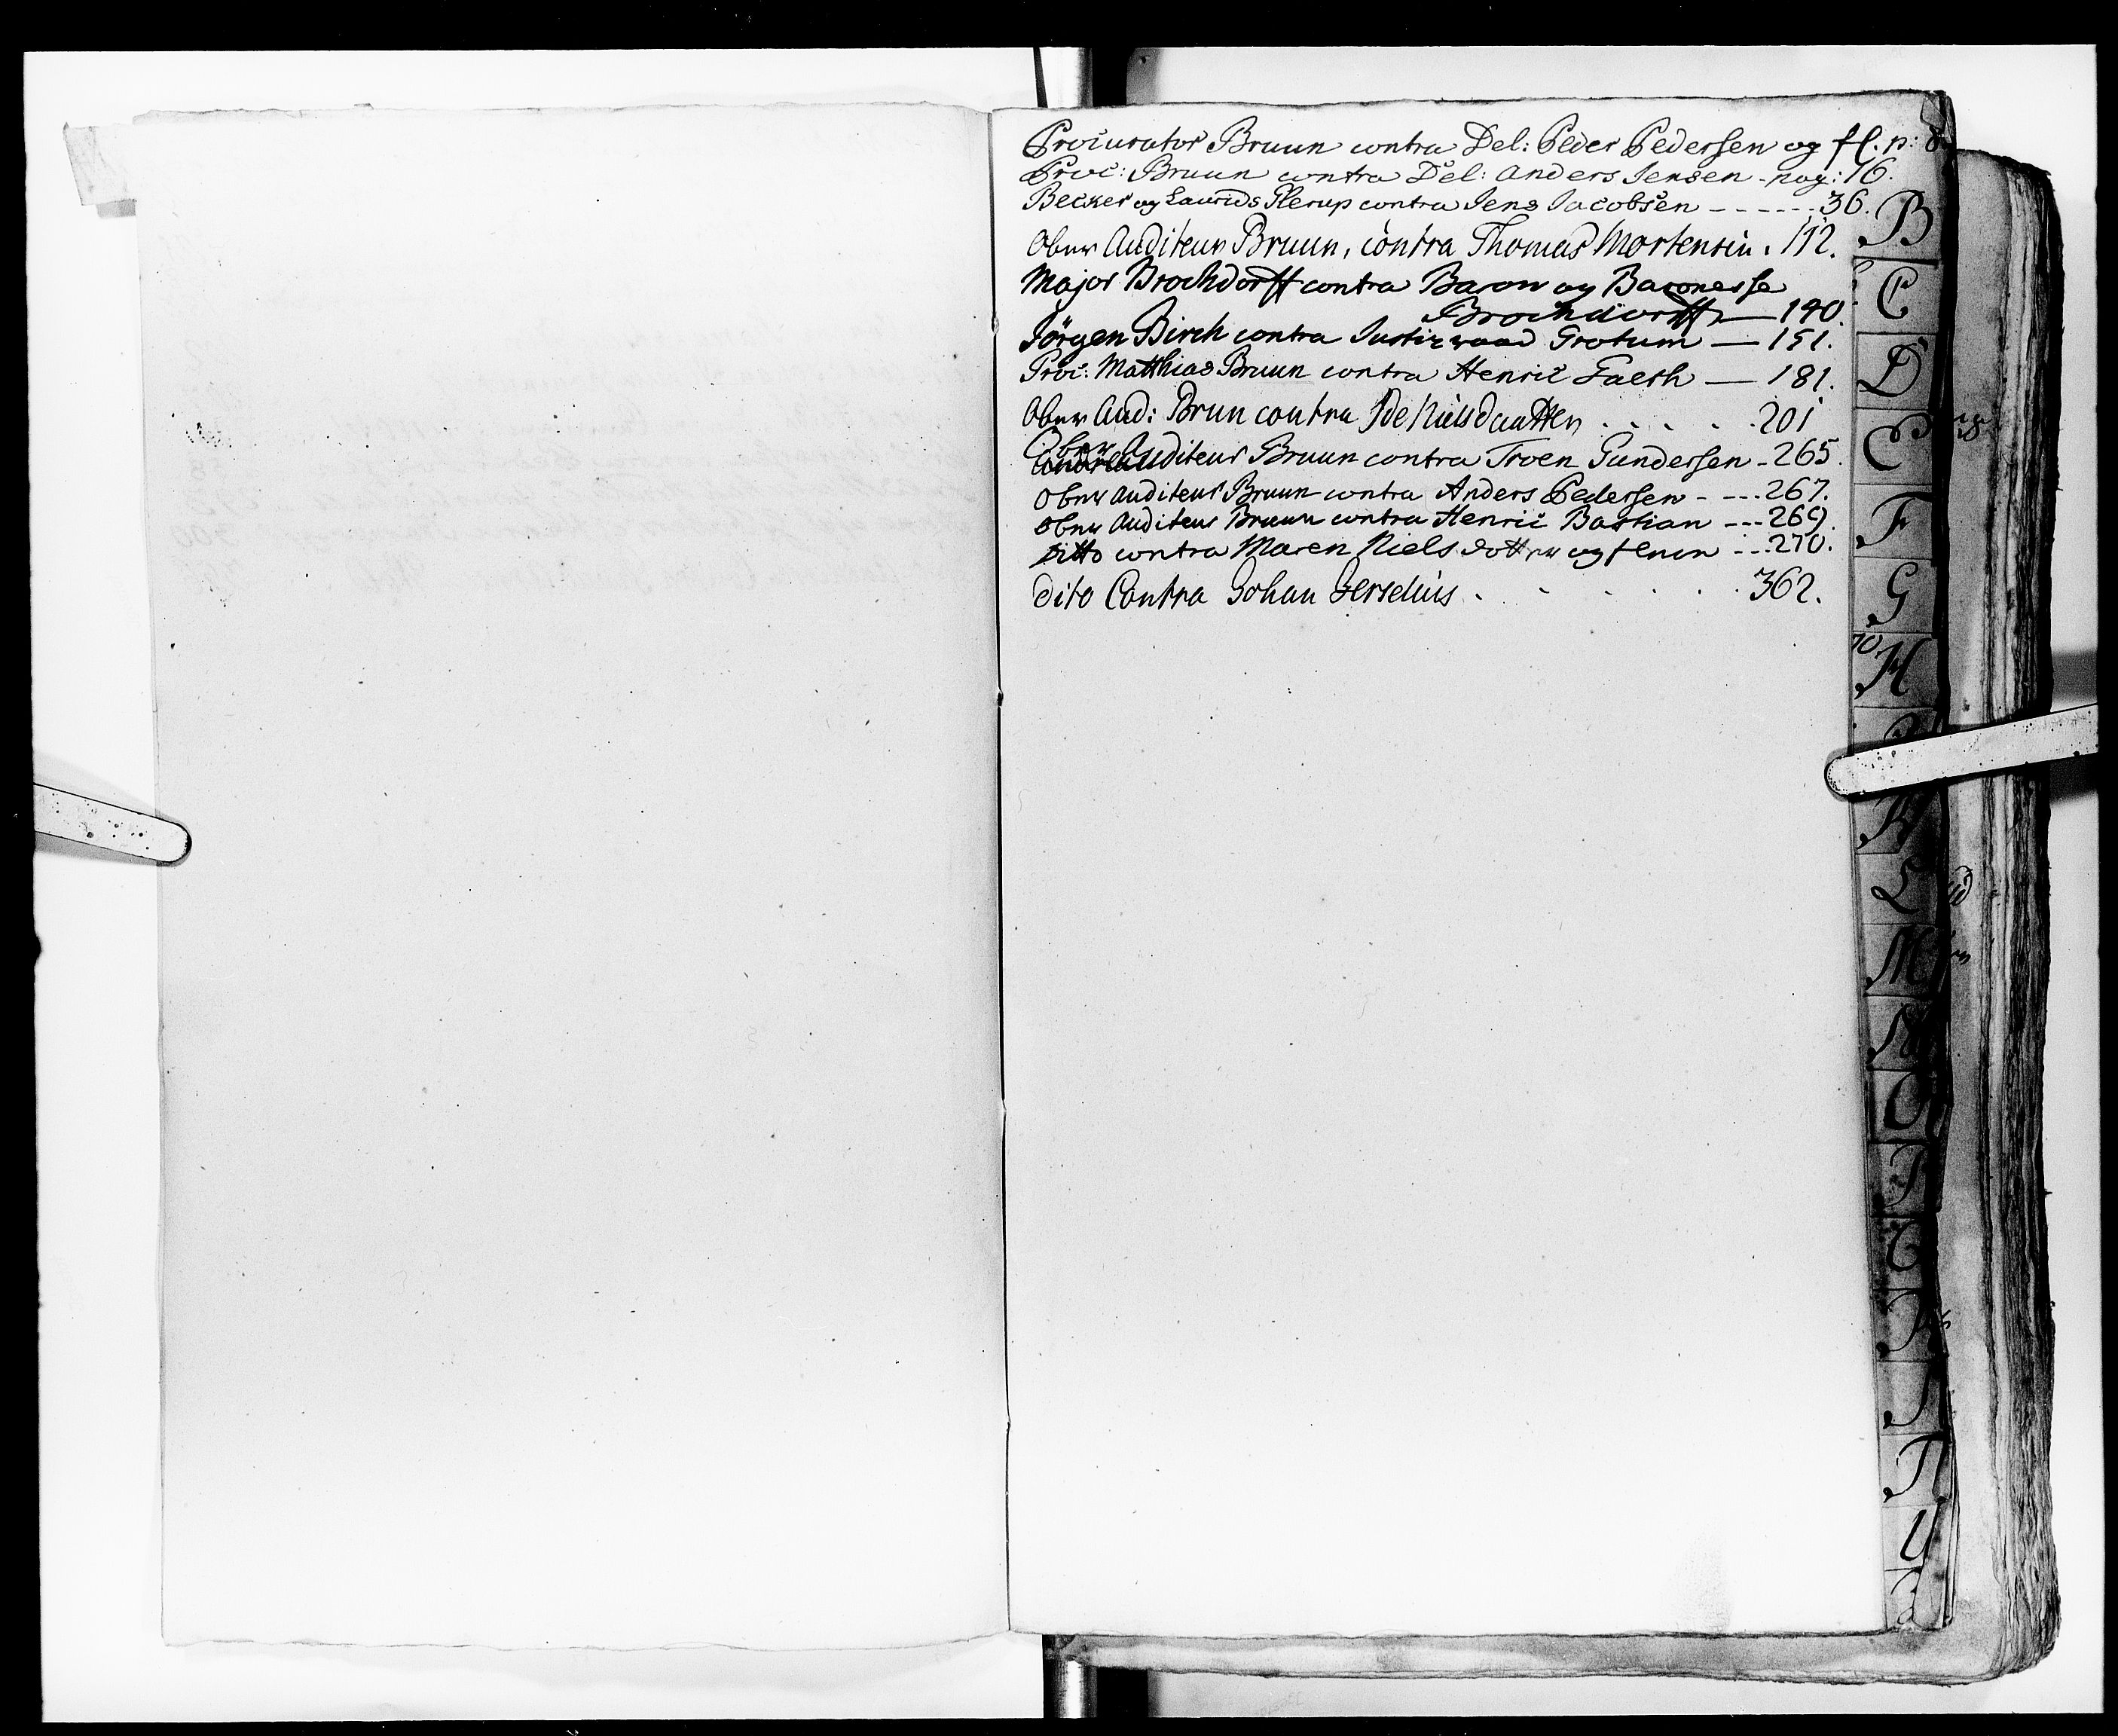 Procurator Bruun contra Del: Peder Pedersen og fl. p: 8
Proc: Bruun contra Del: Anders Jensen - pag: 16.
Becker og Laurids Plerup contra Jens Jacobsen - - - - - - 36.
Ober Auditeur Bruun, contra Thomas Mortensen . 112.
Major Brochdorff contra Baron og Baronesse
Brochdorff — 140.
Jörgen Birch contra Justizraad Grotum — 151.
Proc: Matthias Bruun contra Henric Faesh — 181.
Ober Aud: Brun contra Ide Nielsdaatter . . . . . 201
Ober Auditeur Bruun contra Troen Gundersen - 265.
Ober Auditeur Bruun contra Anders Pedersen - - - - 267.
Ober Auditeur Bruun contra Henric Bastian - - - 269.
Ditto contra Maren Niels dotter og - - - 270.
dito Contra Johan . . . . . . 362.
B
C
D
E
F
G
H
K
L
M
N
O
P
Q
R
S
T
U